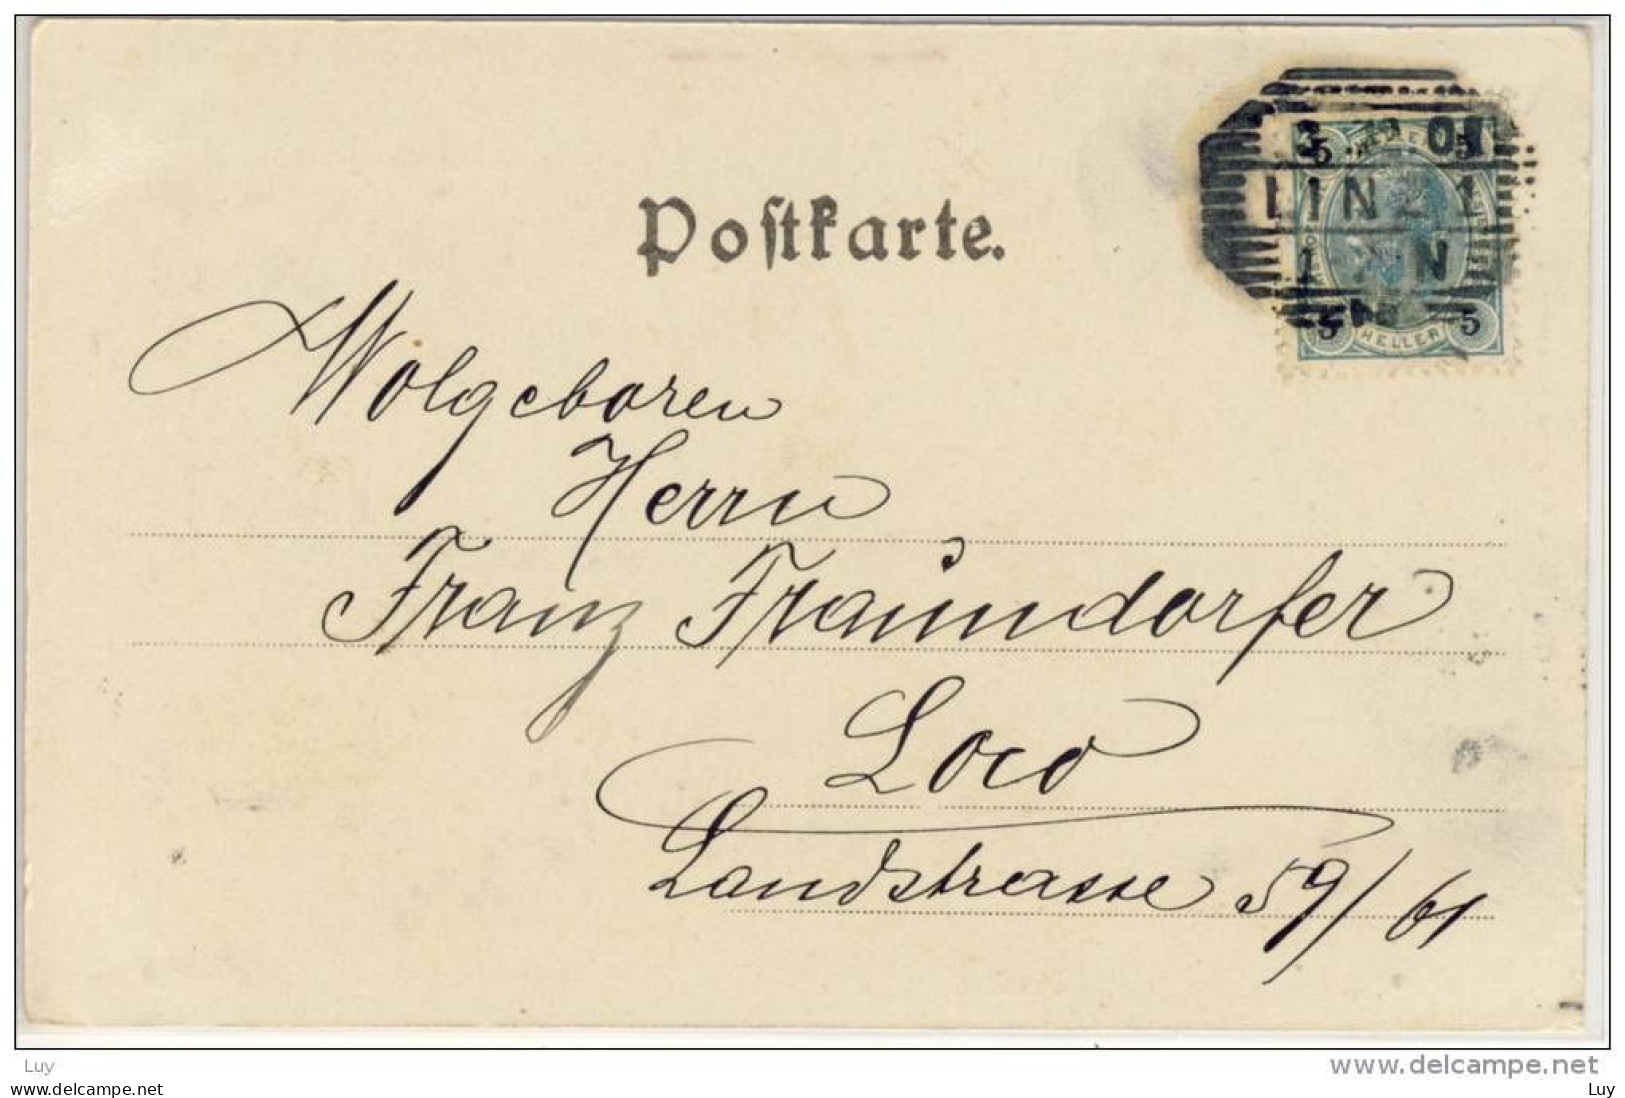 Postkarte.
5 HELLER 5
LINZ 1
5 HELLER 5
Wolgeboren
Herrn
Franz Fraundorfer
Loco
Landstrasse 59/61
Luy
www.delcampe.net
www.delcampe.net
Luy